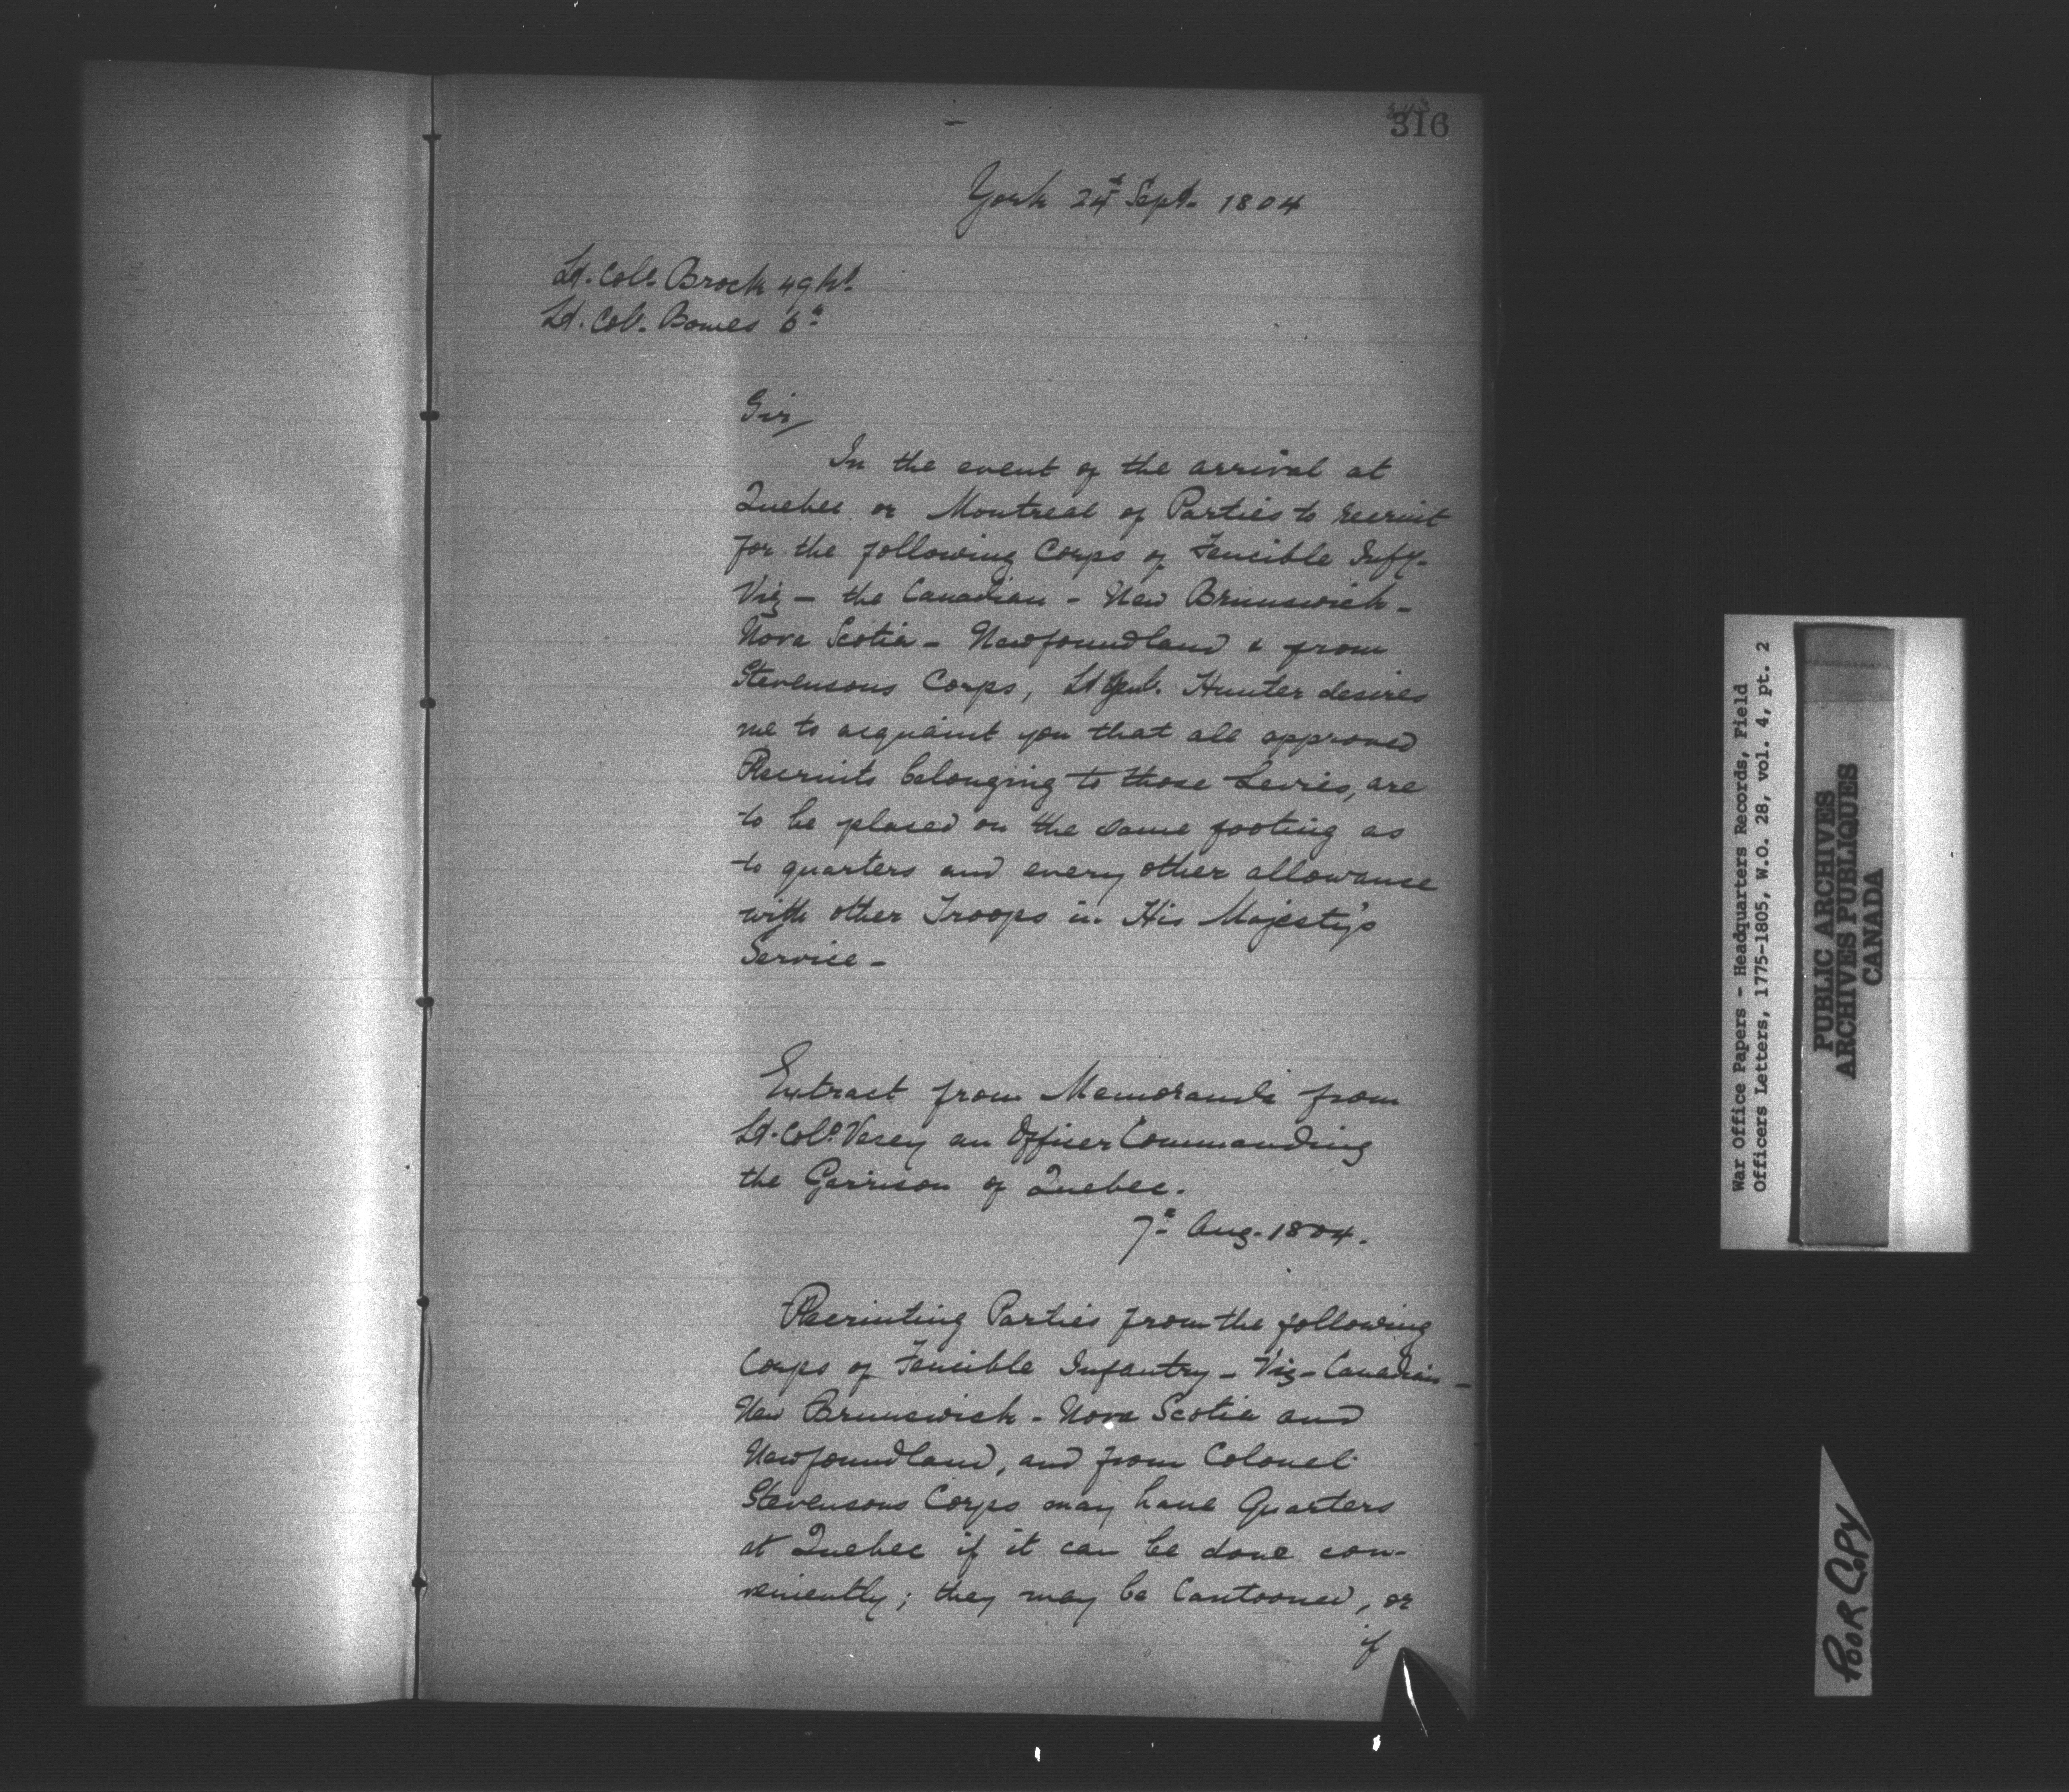 316
York 24th Sept. 1804
Lt. Coll. Brock 49th
Lt. Col. Bowes 6th
Sir,
In the event of the arrival at
Quebec or Montreal of Parties to recruit
for the following Corps of Fencible Infy.
Viz - the Canadian - New Brunswick -
Nova Scotia - Newfoundland & from
Stevensons Corps, Lt Genl. Hunter desires
me to acquaint you that all approved
Recruits belonging to those Levies, are
to be placed on the same footing as
to quarters and every other allowance
with other Troops in His Majesty's
Service -
Extract from Memoranda from
Lt. Coll. Vesey an Officer Commanding
the Garrison of Quebec.
7th Aug. 1804.
Recruiting Parties from the following
Corps of Fencible Infantry - Viz - Canadian -
New Brunswick - Nova Scotia and
Newfoundland, and from Colonel
Stevensons Corps may have Quarters
at Quebec if it can be done con-
veniently; they may be Cantooned, or
if
War Office Papers - Headquarters Records, Field
Officers Letters, 1775-1805, W.O. 28, vol. 4, pt. 2
PUBLIC ARCHIVES
ARCHIVES PUBLIQUES
CANADA
POOR COPY